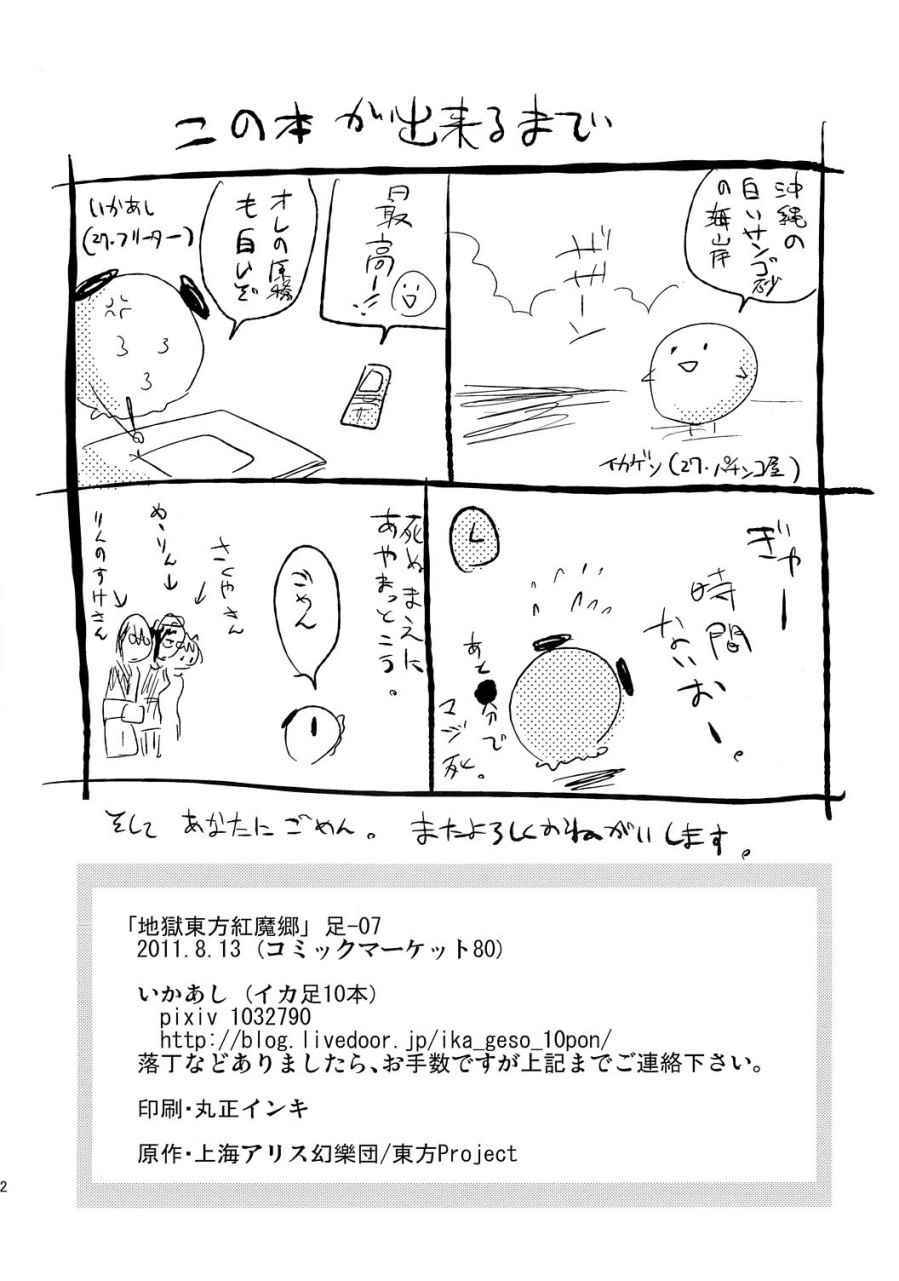 この本が出来るまで
沖縄の
白いサンゴ砂
の海岸
ザザーン
イカゲソ(27・パチンコ屋)
最高ー!!
オレの原稿
も白いぞ
いかあし
(27・フリーター)
ぎゃー
時間
ないおー。
あと●分で
マジ死。
死ぬまえに
あやまっとこう。
ごめん
さくやさん
めーりん
りんのすけさん
そして あなたに ごめん。 またよろしくおねがいします。
「地獄東方紅魔郷」足-07
2011.8.13 (コミックマーケット80)
いかあし (イカ足10本)
pixiv 1032790
http://blog.livedoor.jp/ika_geso_10pon/
落丁などありましたら、お手数ですが上記までご連絡下さい。
印刷・丸正インキ
原作・上海アリス幻樂団/東方Project
2